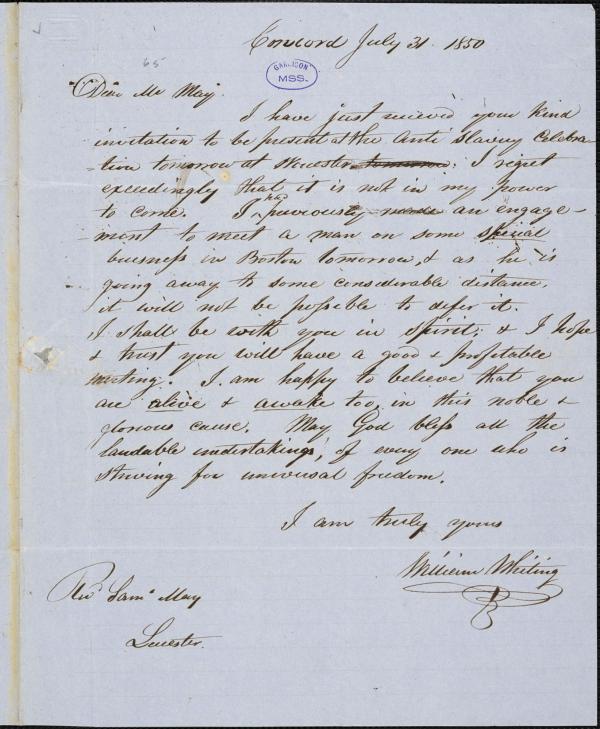 Concord July 31. 1850
65
GARRISON
MSS.
Dear Mr May.
I have just recieved your kind
invitation to be present at the Anti Slavery Celebra-
-tion tomorrow at Worcester tomorrow. I regret
exceedingly that it is not in my power
to come. I had previously made an engage-
-ment to meet a man on some special
buisness in Boston tomorrow, & as he is
going away to some considerable distance,
it will not be possible to defer it.
I shall be with you in spirit; & I hope
& trust you will have a good & profitable
meeting. I am happy to believe that you
are alive & awake too, in this noble &
glorious cause. May God bless all the
laudable undertakings, of every one who is
striving for universal freedom.
I am truly yours
William Whiting
Rev Saml May
Leicester.